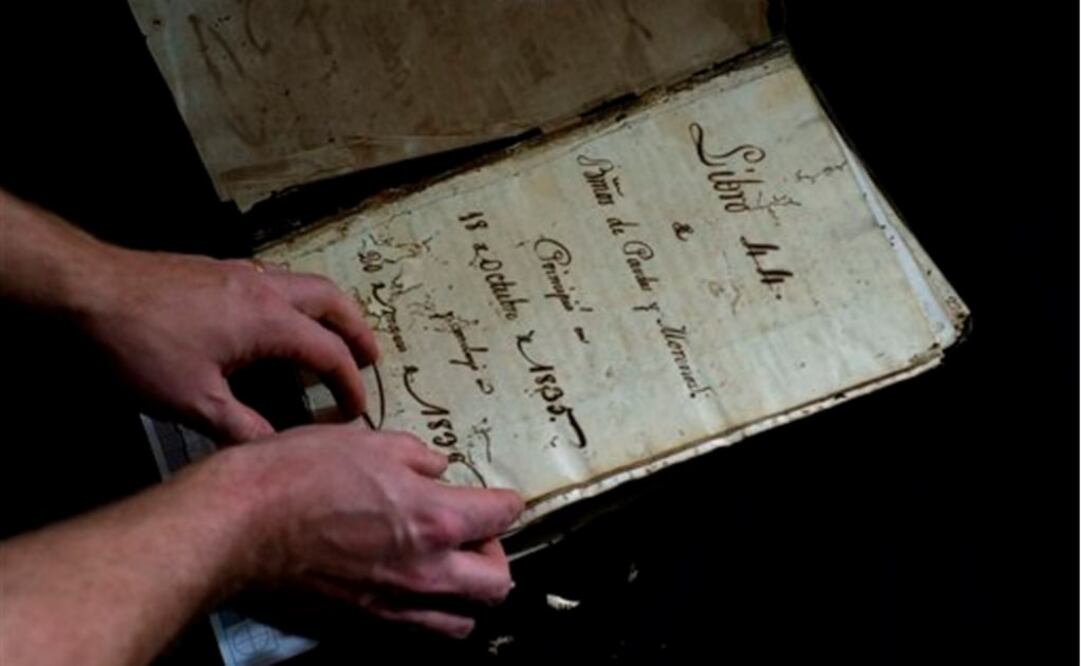 Libro 44.
de
Bmos de Pardos y Morenos.
Principió en
18 de Octubre de 1835.
y concluyó en
20 de de 1838